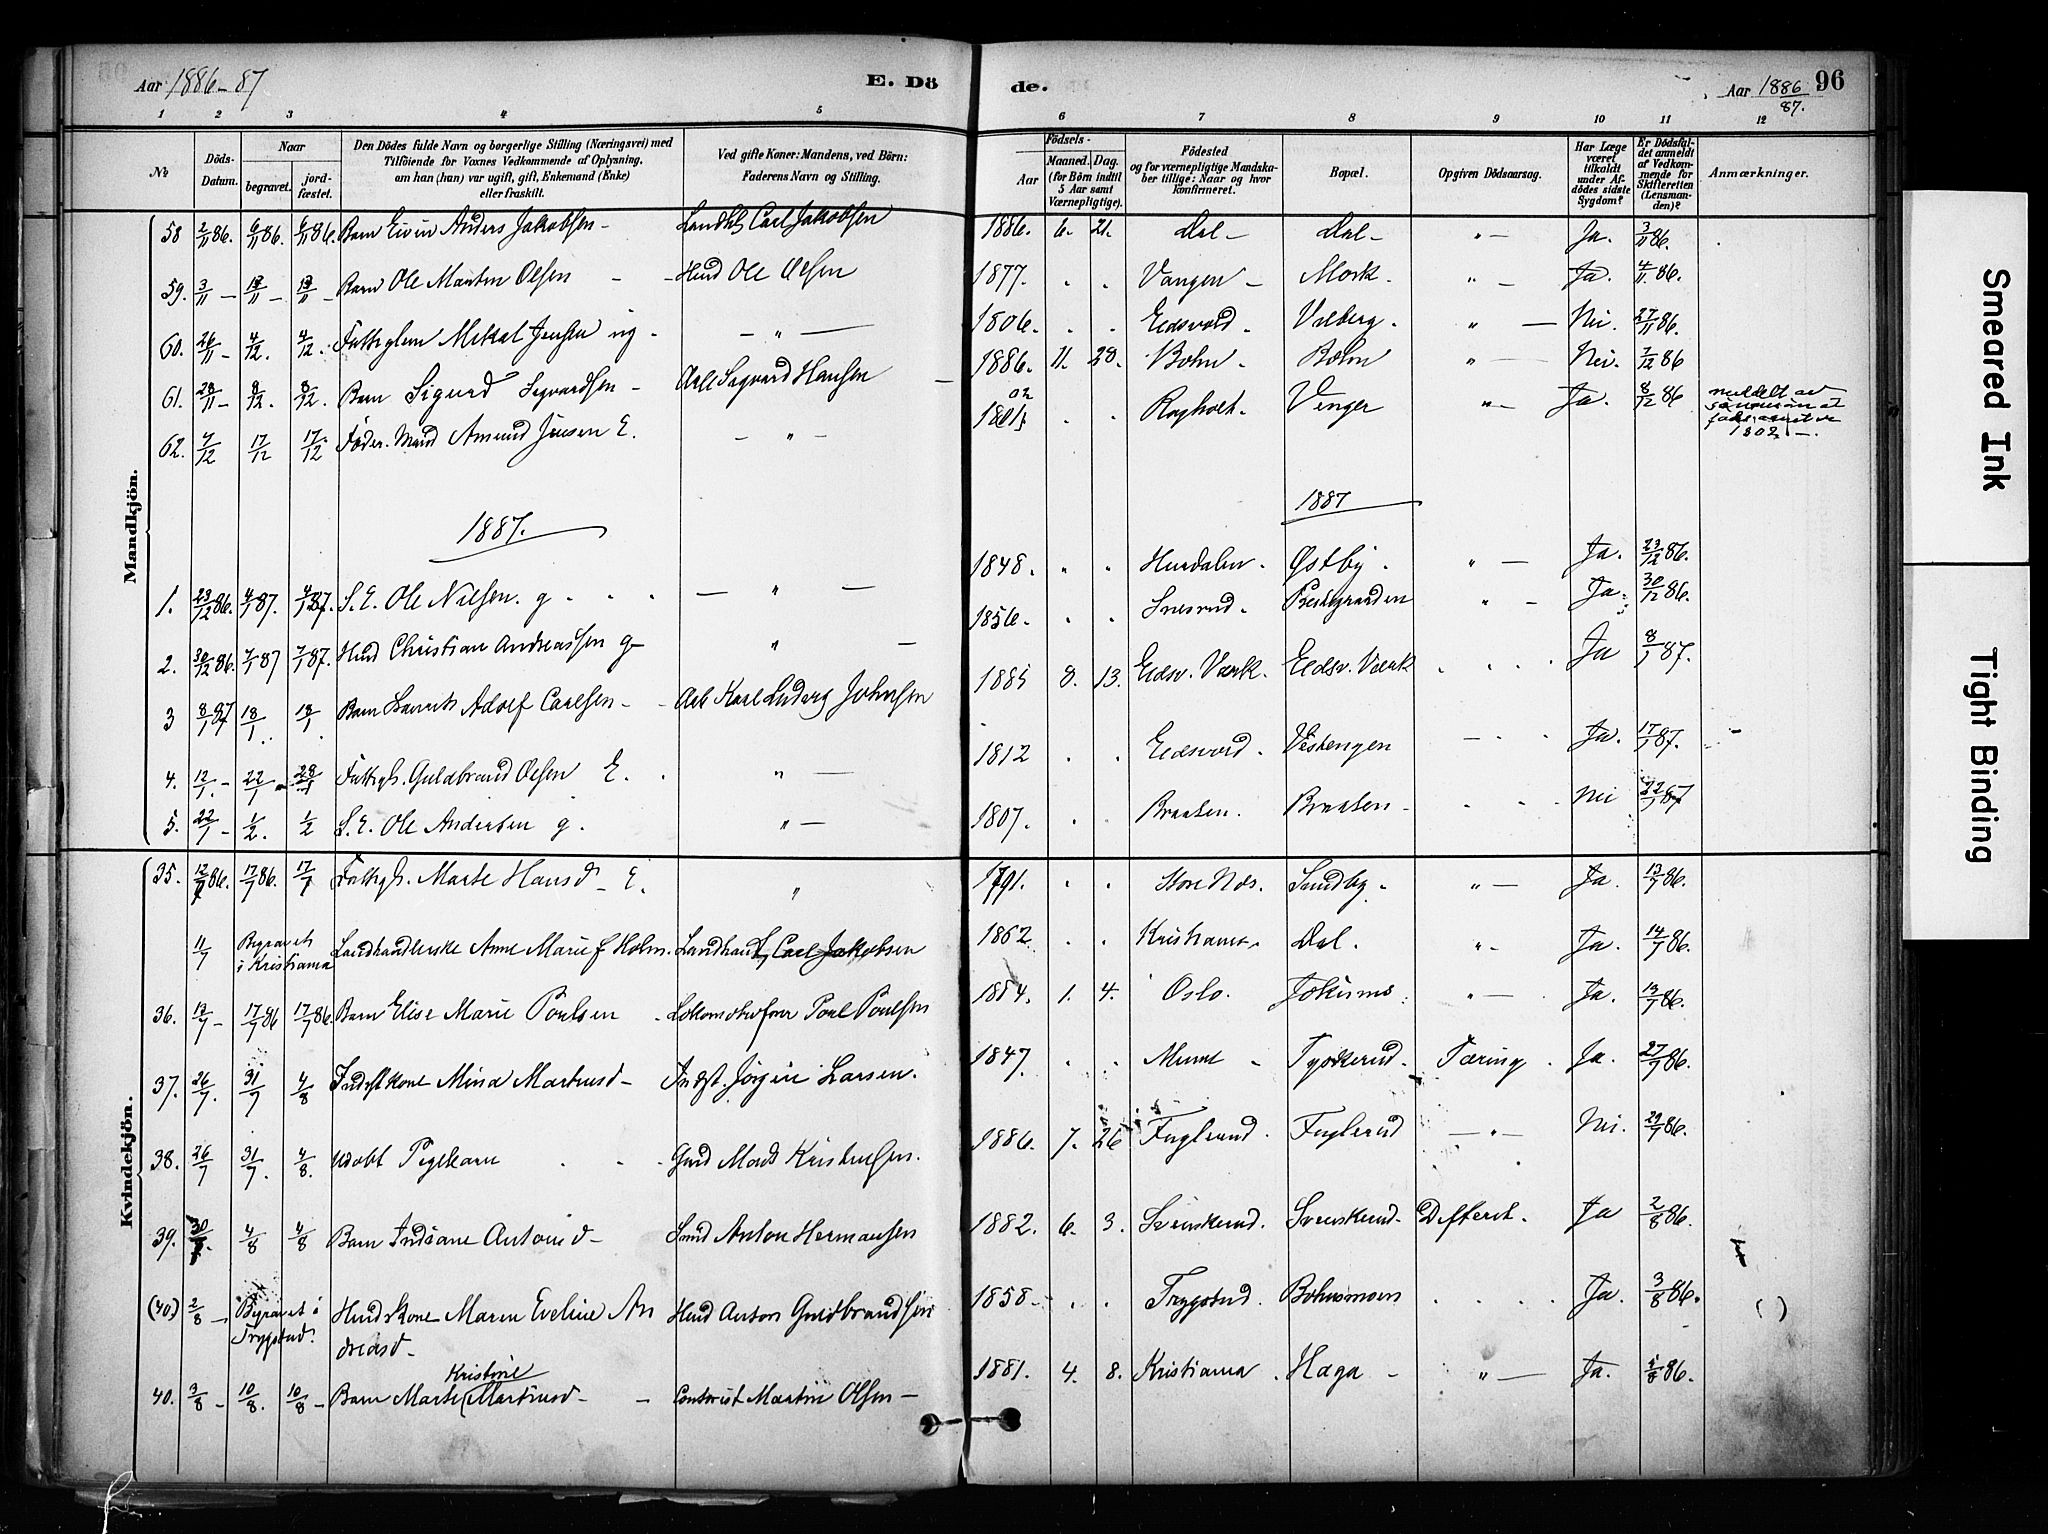 Aar 1886-87
E. Dö
de.
Aar 1886/87.
96
1 2 3 4 5 6 7 8 9 10 11 12
No
Döds-Datum.
Naar
begravet.
jord-fæstet.
Den Dödes fulde Navn og borgerlige Stilling (Næringsvei) med
Tilföiende for Voxnes Vedkommende af Oplysning,
om han (hun) var ugift, gift, Enkemand (Enke)
eller fraskilt.
Ved gifte Koner: Mandens, ved Börn:
Faderens Navn og Stilling.
Födsels-
Aar
Maaned.
Dag.
(for Börn indtil
5 Aar samt
Værnepligtige).
Födested
og for værnepligtige Mandska-
ber tillige: Naar og hvor
konfirmeret.
Bopæl.
Opgiven Dödsaarsag.
Har Læge
været
tilkaldt
under Af-
dödes sidste
Sygdom?
Er Dödsfal-
det anmeldt
af Vedkom-
mende for
Skifteretten
(Lensman-
den)?
Anmærkninger.
Mandkjön.
58 2/11 86. 6/11 86. 6/11 86. Barn Eivin Anders Jakobsen - Landhl Carl Jakobsen 1886. 6. 21. Dal - Dal - " - Ja. 3/11 86.
59. 3/11 - 13/11 - 13/11 - Barn Ole Martin Olsen - Husd Ole Olsen 1877. Vangen - Mork. " - Ja. 4/11 86.
60. 26/11 - 4/12. 4/12. Fattiglem Mikal Jensen ug. - " - 1806. Eidsvold. Valberg. " - Nei. 27/11 86.
61. 28/11 - 8/12. 8/12. Barn Sigurd Sigvardsen - Arb Sigvard Hansen - 1886. 11. 28. Bohn. Bohn " - Nei. 7/12 86
62. 7/12 17/12 17/12 Föder. Mand Amund Jensen E. - " - 1801 02 Ragholt. Vinger " - Ja. 8/12 86 meldt av
1802 -
1887.
1887
1. 23/12 86. 4/1 87. 4/1 87. S. E. Ole Nilsen. g. - " - 1848. Hurdalen. Østby. " - Ja. 23/12 86.
2. 30/12 86. 7/1 87 7/1 87. Husd Christian Andreassen g - " - 1856. Præstegaarden " - Ja. 30/12 86.
3 8/1 87 18/1 18/1 Barn Lauritz Adolf Carlsen - Arb Karl Ludvig Johnsen 1885 8. 13. Eidsv. Værk. Eidsv. Værk Ja 8/1 87.
4. 12/1 - 22/1 - Fattigh. Guldbrand Olsen E. " - 1812 Eidsvold. Vestengen - Ja. 17/1 87.
5. 22/1 - 1/2. 1/2 S. E. Ole Andersen g. " - 1807. Braaten. Braaten - Nei 22/1 87
Kvindekjön.
35. 12/7 86. 17/7 86. 17/7 Fattigh. Marte Hansd - E. " 1791. Store Næs. Sundby. " - Ja. 13/7 86.
11/7 Begravet
i Kristiania Landhandlerske Anne Marie f Holm. Landhandl. Carl Jakobsen 1862 Kristiania. Dal. " - Ja. 14/7 86.
36. 13/7 - 17/7 86 17/7 86. Barn Elise Marie Poulsen - Lokomotivförer Poul Poulsen 1884. 1. 4. Oslo. " - Ja. 13/7 86.
37. 26/7. 31/7 4/8 Indst kone Mina Martinsd - Indst. Jörgen Larsen. 1847. Minne - Tyskerud. Tæring. Ja. 27/7 86.
38. 26/7 31/7. 4/8. Udöbt Pigebarn - Gmd Mads Kristensen. 1886. 7. 26 Fuglerud. Fuglerud - " - Nei. 29/7 86.
39. 30/7. 4/8 4/8 Barn Indiane Antonsd - Smd Anton Hermansen 1882. 6. 3. Svenskerud. Svenskerud - Difterit. Ja 2/8 86.
(40) 2/8 - Begravet i
Trygstad. Husd kone Maren Eveline An
dreasd - Husd Anton Guldbrandsen 1858 - Trygstad. Bohnsmoen Ja. 3/8 86. ( )
Kristine
40. 3/8 - 10/8. 10/8 - Barn Marte (Martinsd - - Contorist Martin Olsen - 1881. 4. 8. Kristiania. Haga - " - Ja. 5/8 86.
Smeared Ink
Tight Binding